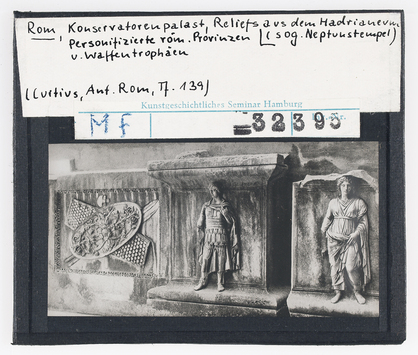 Rom, Konservatorenpalast, Reliefs aus dem Hadrianeum
Personifizierte röm. Provinzen (sog. Neptunstempel)
u. Waffentrophäen
(Curtius, Ant. Rom, T. 139)
Kunstgeschichtliches Seminar Hamburg
MF 32393